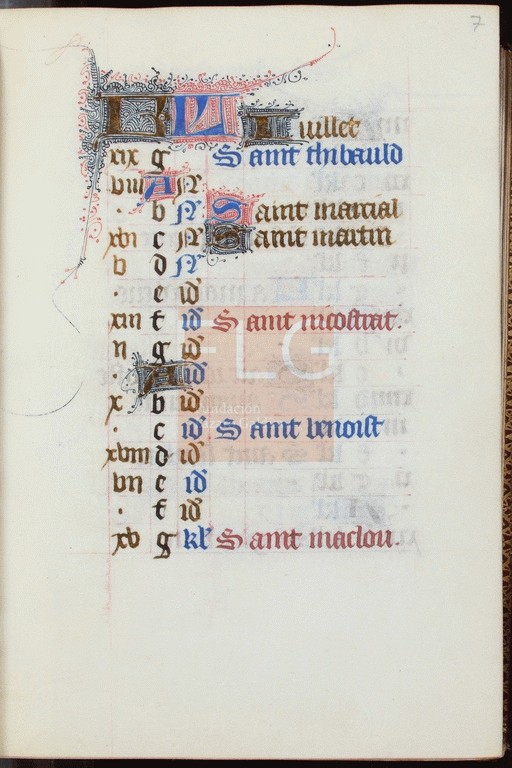 7
KL Iuillet
xix g Saint thibauld
viii A N
. b N Saint marcial
xvi c N Saint martin
v d N
. e id
xiii f id Saint nicostrat.
ii g id
. A id
x b id
. c id Saint benoist
xviii d id
vii e id
. f id
xv g kl' Saint maclou.
FLG